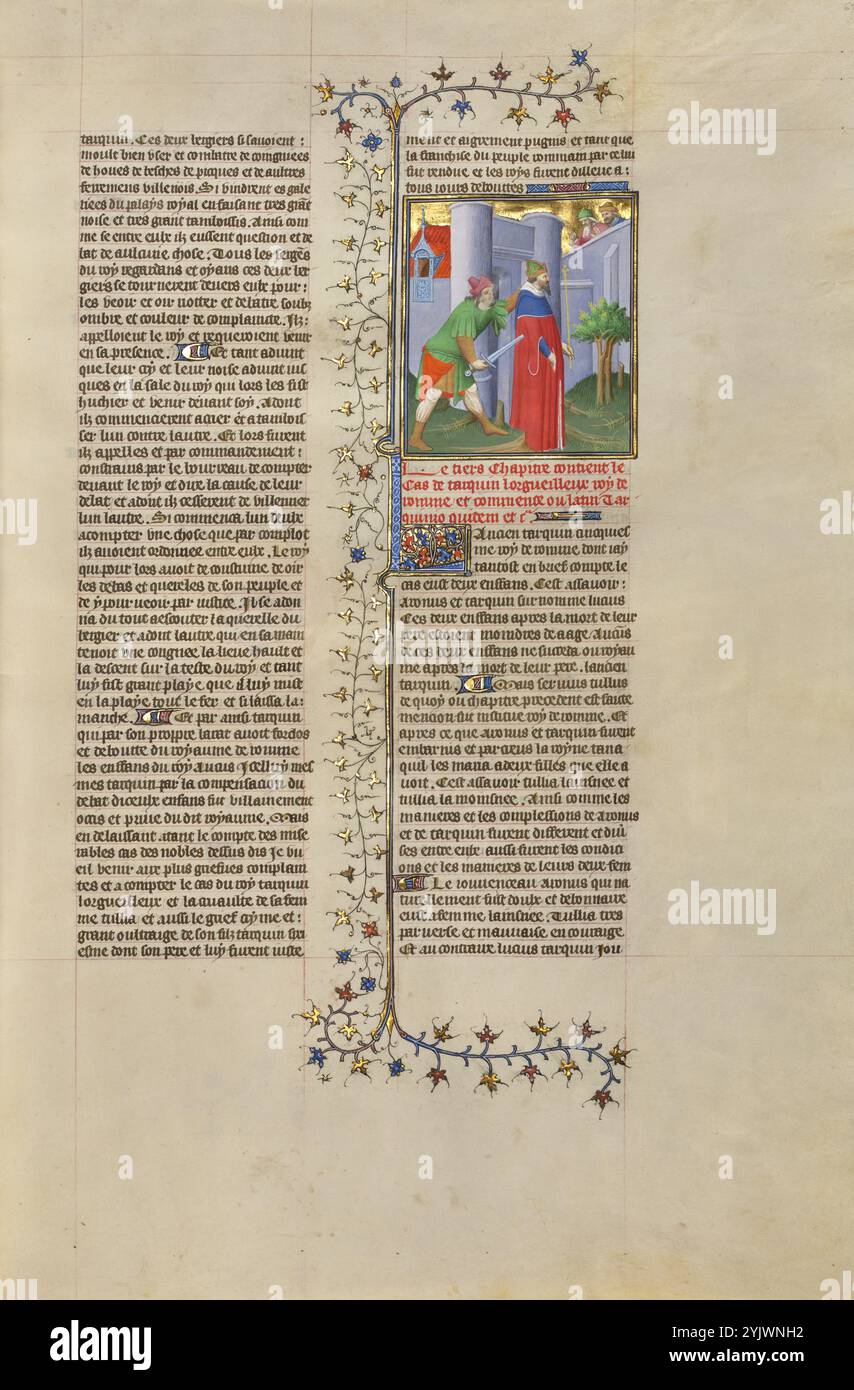 tarquin. Ces deux bergiers si savoient :
moult bien user et combatre de coingniees
de houes de besches de picques et de aultres
ferremens villenois. Si vindrent es gale
ries du palays royal en faisant tres grant
noise et tres grant tamboissis. Ainsi com
me se entre eulx ilz eussent question et de
bat de aulcune chose. Tous les sergens
du roy regardans et oyans ces deux ber
giers se tournerent devers eulx pour :
les veoir et oir
ombre et couleur de complaincte. Ilz :
appelloient le roy et requeroient venir
en sa presence. Et tant advint
que leur cry et leur noise advint jus
ques en la sale du roy qui lors les fist
huchier et venir devant soy. Adont
ilz commencierent a crier et a tambois
ser lun contre lautre. Et lors furent
ilz appelles et par commandement :
constrains par le bourreau de compter
devant le roy et dire la cause de leur
debat et adont ilz cesserent de villenner
lun lautre. Si commenca lun deulx
a compter une chose que par complot
ilz avoient ordonnee entre eulx. Le roy
qui pour lors avoit de coustume de oir
les debas et quereles de son peuple et
de y pourveoir par justice. Il se adon
na du tout a escouter la querelle du
bergier et adont lautre qui en sa main
tenoit une congnee la lieve hault et
la descent sur la teste du roy et tant
luy fist grant playe que il luy mist
en la playe tout le fer et si laissa la :
manche. Et par ainsi tarquin
qui par son propre barat avoit fordos
et deboute du royaume de romme
les enffans du roy Ancus Icelluy mes
mes tarquin par la compensacion du
debat diceulx enfans fut villainement
occis et prive du dit royaume. Mais
en delaissant atant le compte des mise
rables cas des nobles dessus dis Je vu
eil venir aux plus griefves complain
tes et a compter le cas du roy tarquin
lorgueilleux et la cruaulte de sa fem
me tullia et aussi le grief cryme et :
grant oultraige de son filz tarquin sex
esme dont son pere et luy furent juste
ment et aigrement pugnis et tant que
la franchise du peuple rommain par ce lui
fut rendue et les roys furent dilleuc a :
tous jours deboutes
Le tiers Chapitre contient le
Cas de tarquin lorgueilleux roy de
romme et commence ou latin Tar
quinio quidem et c.
Ancien tarquin cincquies
me roy de romme dont jay
tantost en brief compte le
cas eust deux enffans. Cest assavoir :
Aronus et tarquin surnomme lucius
Ces deux enffans apres la mort de leur
pere estoient moindres de aage Aucuns
de ces deux enffans ne succeda ou royau
me apres la mort de leur pere lancien
tarquin. Mais servius tullius
de quoy ou chapitre precedent est faicte
mencion fut institue roy de romme. Et
apres ce que Aronus et tarquin furent
embarnis et parcreus la royne tana
quil les maria a deux filles que elle a
voit. Cest assavoir tullia laisnee et
tullia la moinsnee. Ainsi comme les
manieres et les complessions de Aronus
et de tarquin furent different et diver
ses entre eulx aussi furent les condici
ons et les manieres de leurs deux fem
Le jouvenceau Aronus qui na
turellement fust doulx et debonnaire
eut a femme laisnee. Tullia tres
perverse et mauvaise en couraige
Et au contraire lucius tarquin jou
alamy
Image ID: 2YJWNH2
www.alamy.com